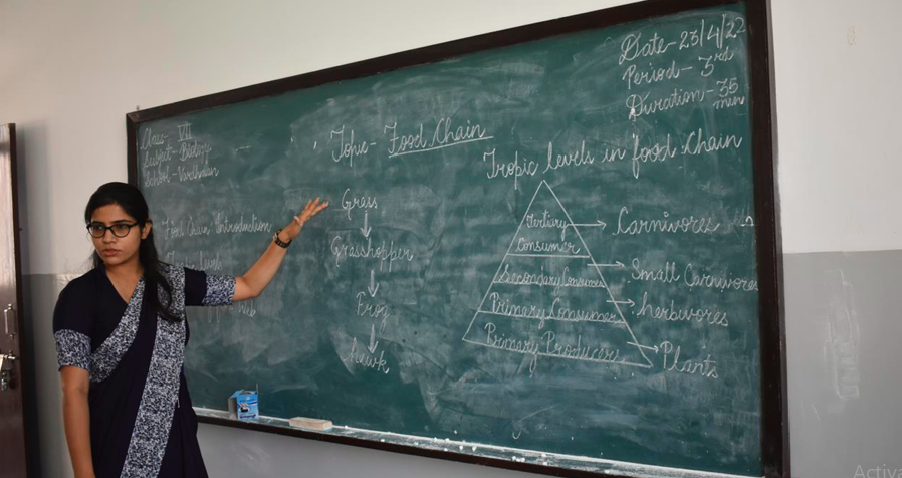 Class- VII
Subject- Biology
School- Vardhman
Topic- Food Chain
Date- 23/4/22
Period- 3rd
Duration- 35 min
Food Chain: Introduction
Grass
Grasshopper
Frog
Hawk
Tropic levels in food chain
Tertiary Consumer
Carnivores
Secondary Consumer
Small Carnivores
Primary Consumer
herbivores
Primary Producers
Plants
Activa